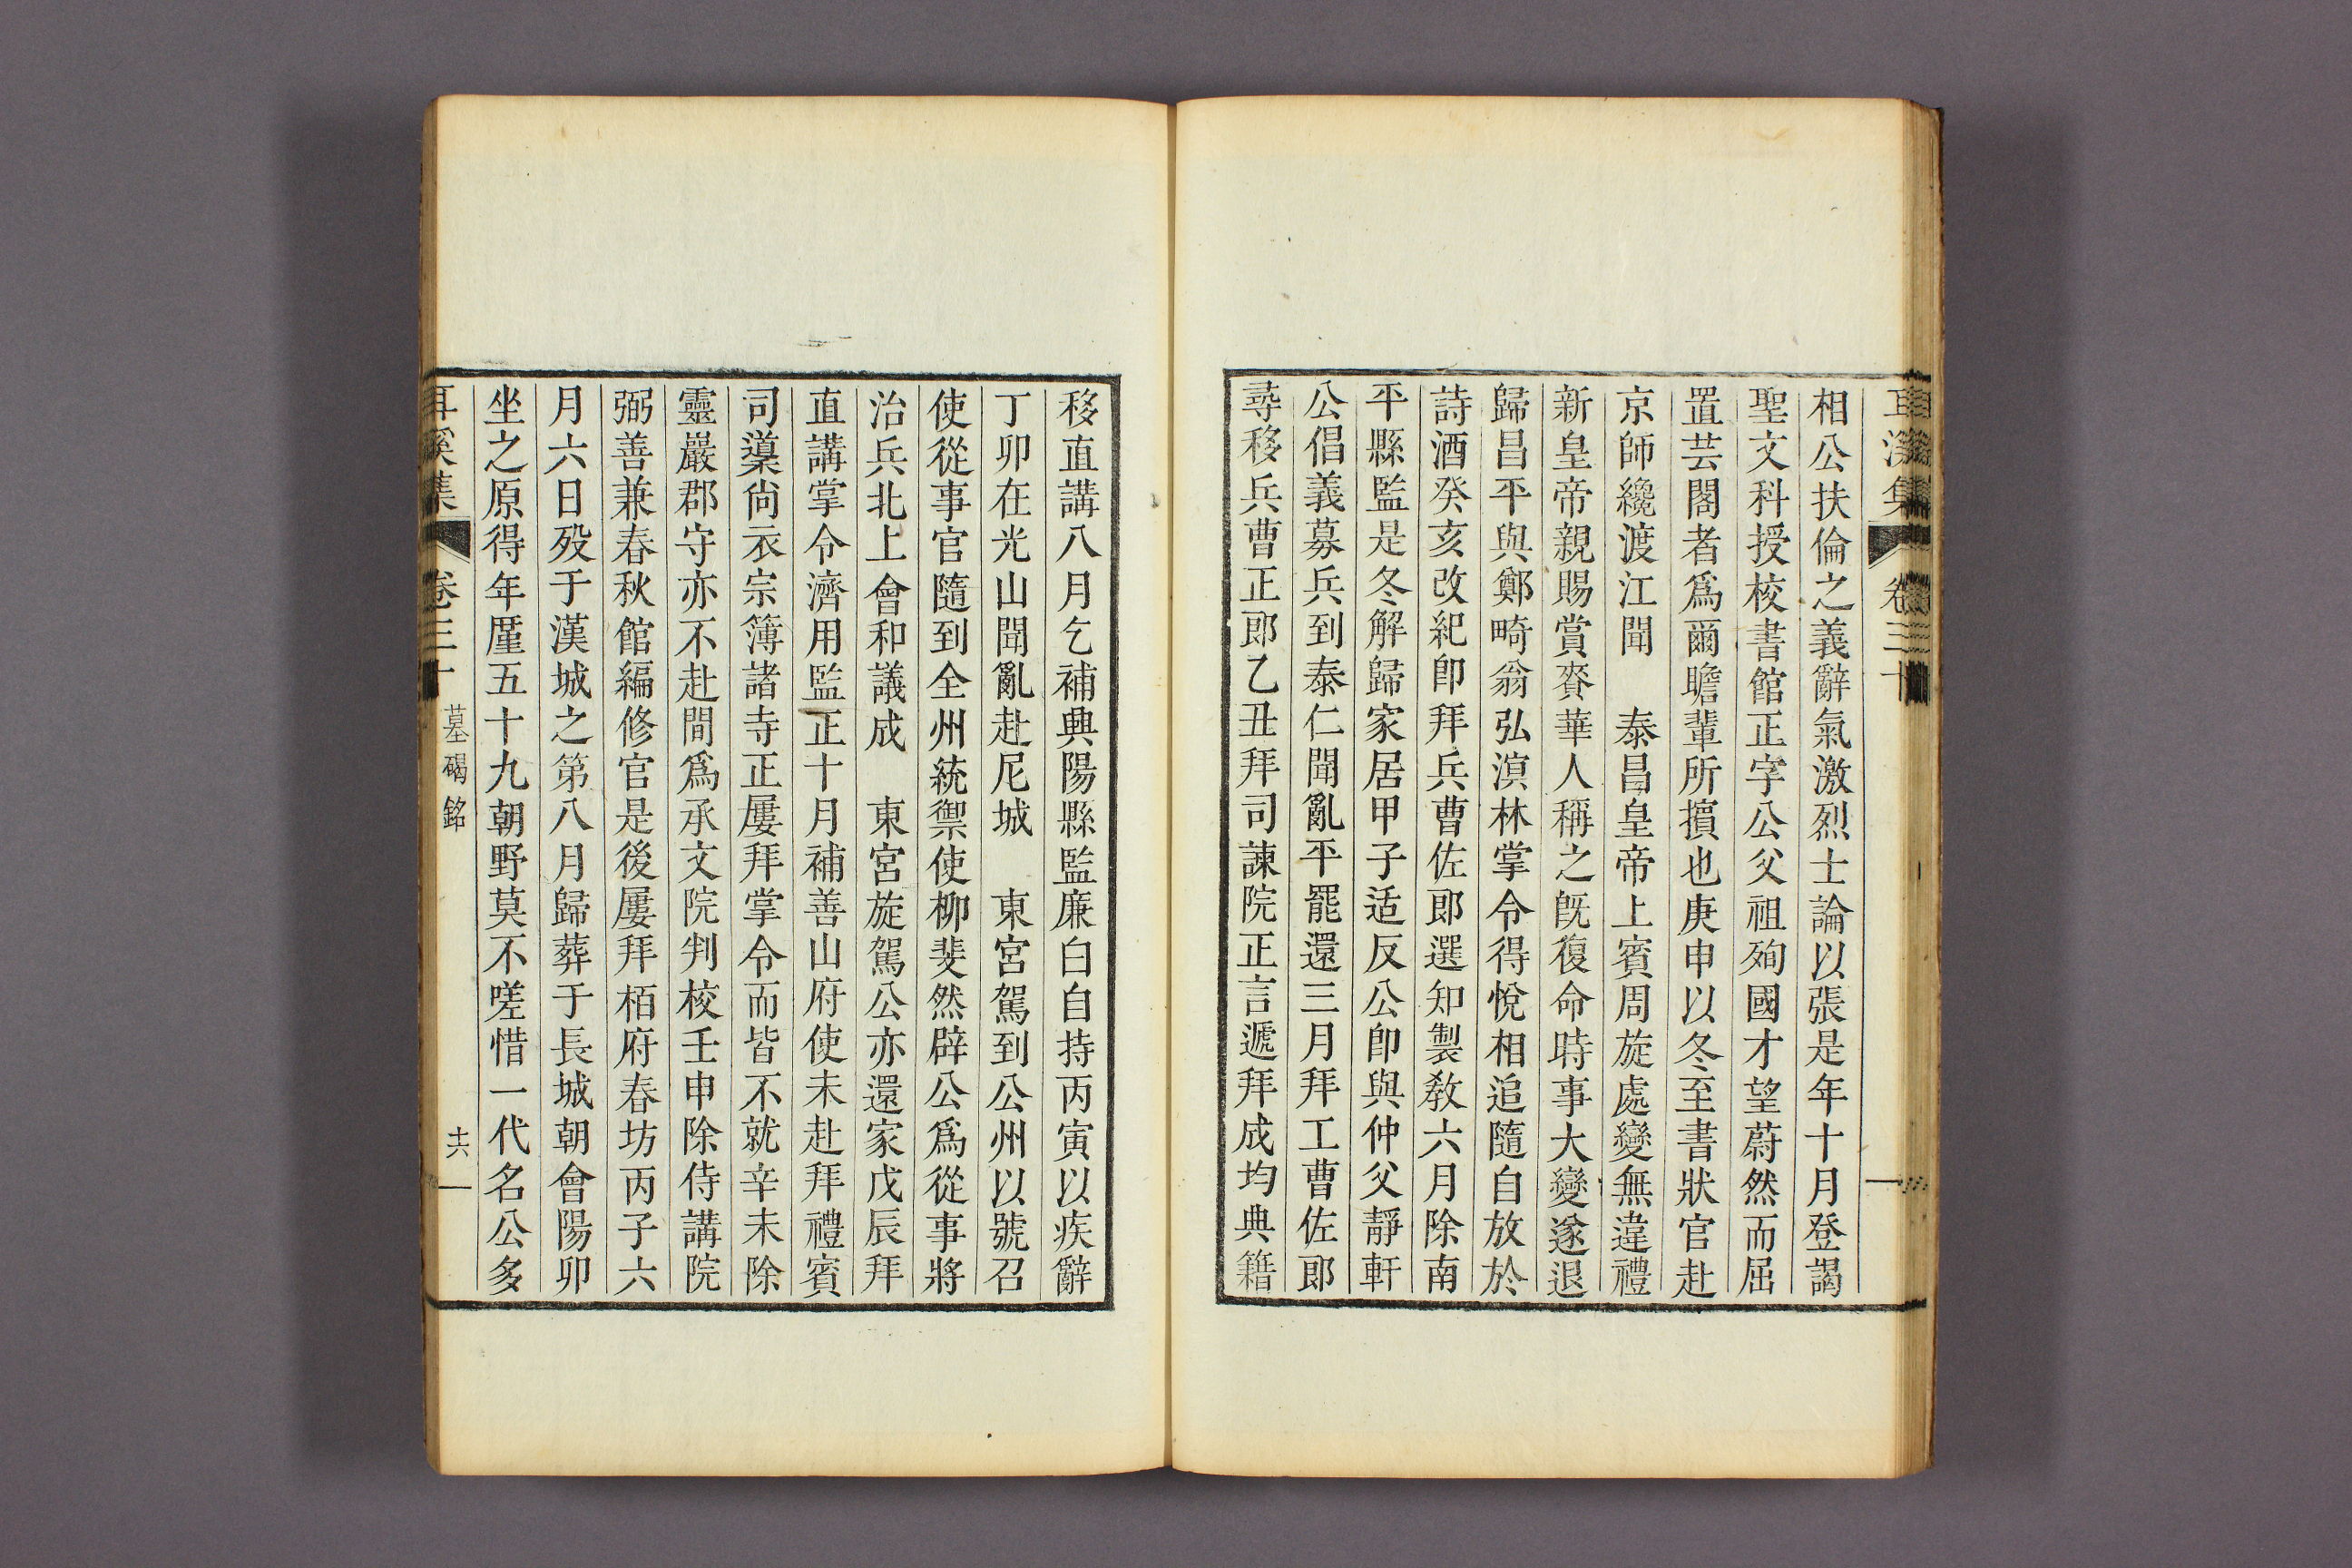 相公扶倫之義辭氣激烈士論以張是年十月登謁
聖文科授校書館正字公父祖殉國才望蔚然而屈
置芸閣者爲爾瞻輩所擯也庚申以冬至書狀官赴
京師纔渡江聞　泰昌皇帝上賓周旋處變無違禮
新皇帝親賜賞賚華人稱之旣復命時事大變遂退
歸昌平與鄭畸翁弘溟林掌令得悅相追隨自放於
詩酒癸亥改紀卽拜兵曹佐郞選知製敎六月除南
平縣監是冬解歸家居甲子适反公卽與仲父靜軒
公倡義募兵到泰仁聞亂平罷還三月拜工曹佐郞
尋移兵曹正郞乙丑拜司諫院正言遞拜成均典籍
移直講八月乞補興陽縣監廉白自持丙寅以疾辭
丁卯在光山聞亂赴尼城　東宮駕到公州以號召
使從事官隨到全州統禦使柳斐然辟公爲從事將
治兵北上會和議成　東宮旋駕公亦還家戊辰拜
直講掌令濟用監正十月補善山府使未赴拜禮賓
司導尙衣宗簿諸寺正屢拜掌令而皆不就辛未除
靈巖郡守亦不赴間爲承文院判校壬申除侍講院
弼善兼春秋館編修官是後屢拜栢府春坊丙子六
月六日歿于漢城之第八月歸葬于長城朝會陽卯
坐之原得年厪五十九朝野莫不嗟惜一代名公多
耳溪集　卷三十　墓碣銘　十六